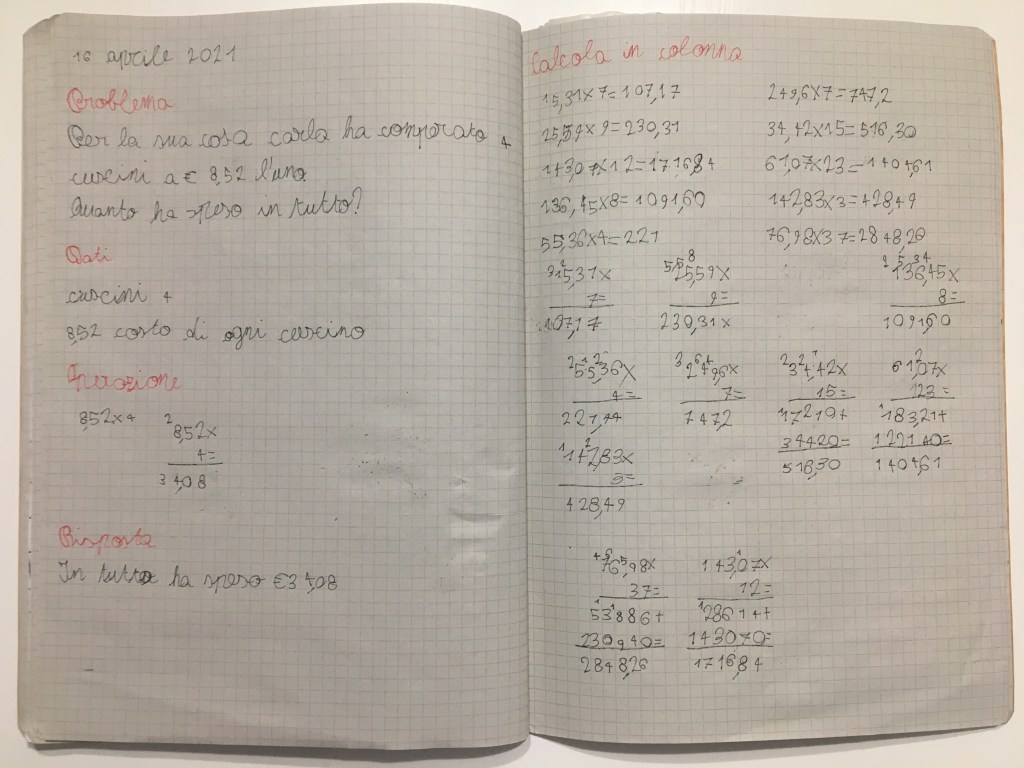 16 aprile 2021
Problema
Per la sua casa carla ha comperato 4
cuscini a € 8,52 l'uno
Quanto ha speso in tutto?
Dati
cuscini 4
8,52 costo di ogni cuscino
Operazione
8,52x4
2
8,52x
4=
34,08
Risposta
In tutto ha speso €34,08
Calcola in colonna
15,31x7=107,17
249,6x7=747,2
25,59x9=230,31
34,42x15=516,30
143,07x12=1716,84
61,07x23=1404,61
136,45x8=1091,60
142,83x3=428,49
55,36x4=221
76,98x37=2848,26
15,31x
7=
107,17
25,59x
9=
230,31x
136,45x
8=
1091,60
55,36x
4=
221,44
249,6x
7=
747,2
34,42x
15=
17219+
34420=
516,30
61,07x
123=
18321+
122140=
1404,61
142,83x
3=
428,49
76,98x
37=
53886+
230940=
2848,26
143,07x
12=
28614+
143070=
1716,84